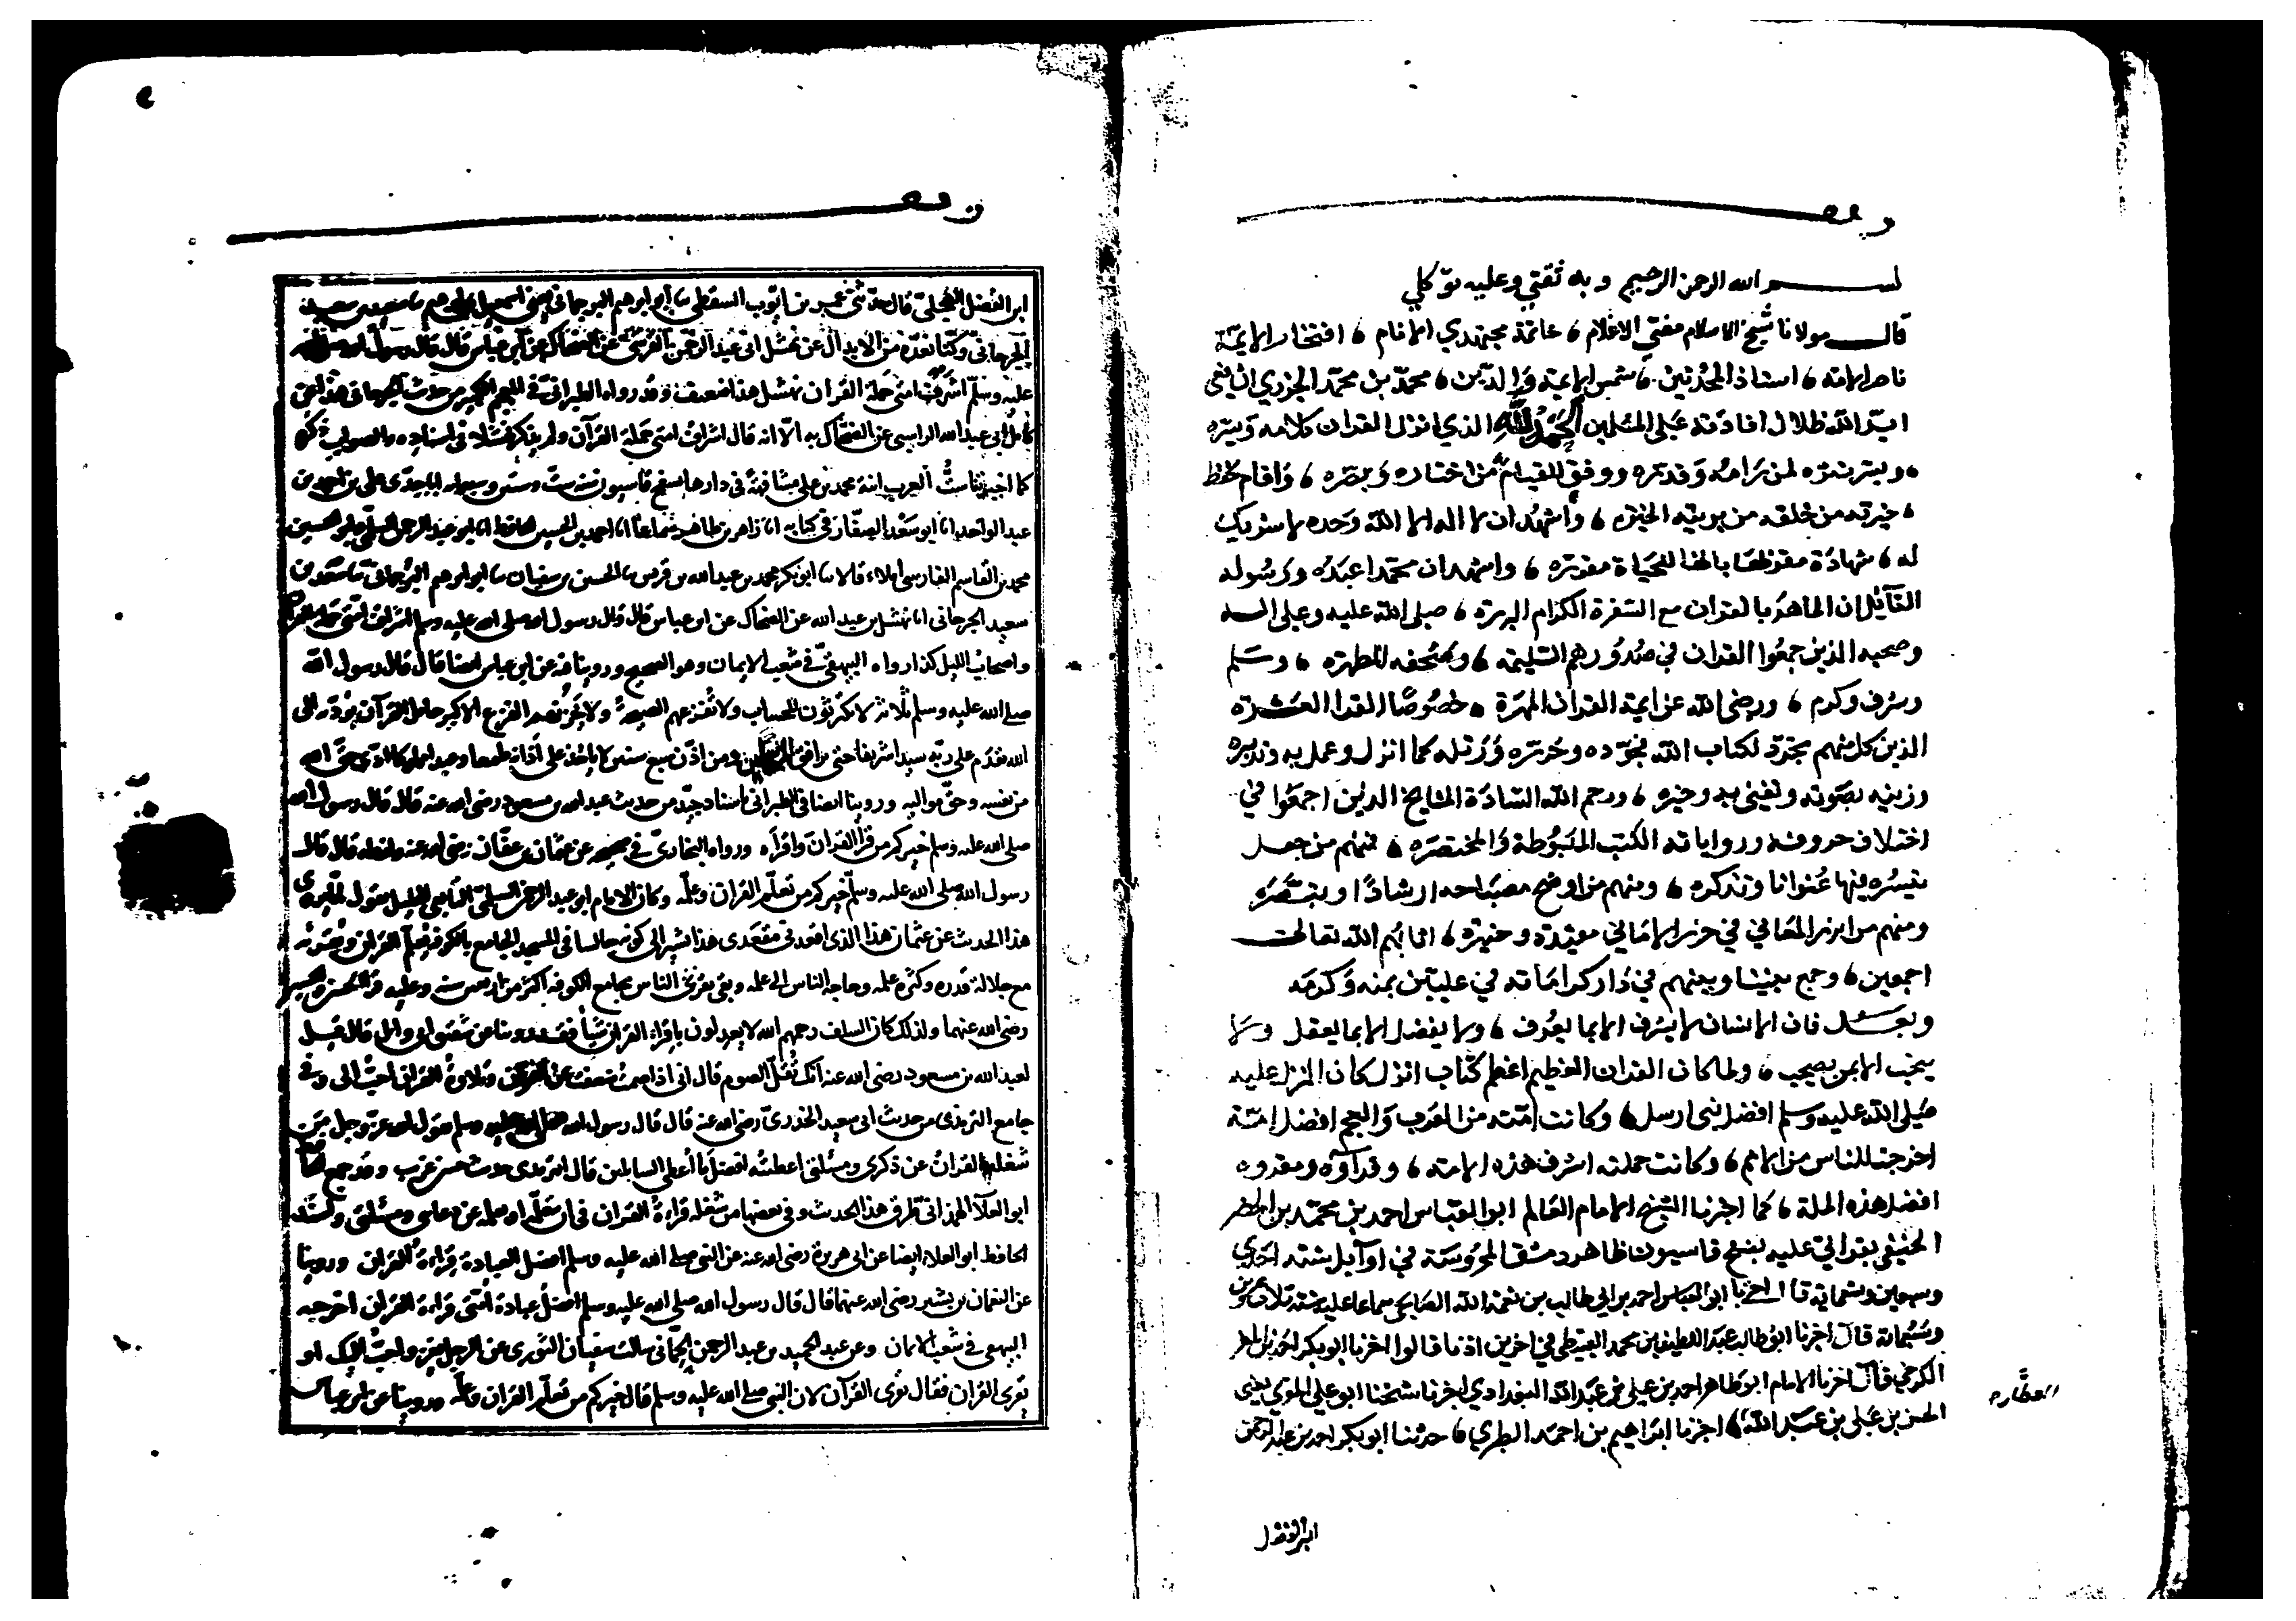 وقف
بسم الله الرحمن الرحيم وبه ثقتي وعليه توكلي
قال مولانا شيخ الاسلام مفتي الاعلام، خاتمة مجتهدي الانام، افتخار الايمة
ناصر الامة، استاذ المحدثين، شمس الايمة والدين، محمد بن محمد الجزري الشافعي
ابد الله ظلال افادته على المسلمين الحمد لله الذي انزل القران كلامه ويسره
، ويسر نشره لمن رامه وقدره ووفق للقيام به من اختاره وبصره، واقام لحفظه
، خيرته من خلقه من بريته الخيره، واشهد ان لا اله الا الله وحده لا شريك
له، شهادة مقر بها بانها للنجاة مقررة، واشهد ان محمدا عبده ورسوله
القايل ان الماهر بالقران مع السفرة الكرام البررة، صلى الله عليه وعلى اله
وصحبه الذين جمعوا القران في صدورهم السليمة، وصحفه المطهرة، وسلم
وشرف وكرم، ورضى الله عن ايمة القران المهرة، خصوصا القرا العشرة
الذين كل منهم تجرد لكتاب الله فجوده وحرره ورتله كما انزل وعمل به وتدبره
وزينه بصوته وتغنى به وحبره، ورحم الله السادة المشايخ الذين اجمعوا في
اختلاف حروفه ورواياته الكتب المبسوطة والمختصرة، فمنهم من جعل
تيسره فيها عنوانا وتذكره، ومنهم من اوضح مصباحه ارشادا وتبصره
ومنهم من ابرز المعاني في حرز الاماني مفيدة وخيره، اثابهم الله تعالى
اجمعين، وجمع بيننا وبينهم في دار كراماته في عليين بمنه وكرمه
وبعد فان الانسان لا يشرف الا بما يعرف، ولا يفضل الا بما يعقل ولا
ينجب الا بمن يصحب، ولما كان القران العظيم اعظم كتاب انزل كان المنزل عليه
صلى الله عليه وسلم افضل نبى ارسل، وكانت امته من العرب والعجم افضل امة
اخرجت للناس من الامم، وكانت حملته اشرف هذه الامة، وقراؤه ومقروه
افضل هذه الملة، كما اخبرنا الشيخ الامام العالم ابو العباس احمد بن محمد بن الخضر
الحنفي بقراتي عليه بسفح قاسيون ظاهر دمشق المحروسة في اوايل سنة احدى
وسبعين وسبعماية قال اخبرنا ابو العباس احمد بن ابي طالب بن نعمة الله الصالحي سماعا عليه سنة ثلاثين
وسبعماية قال اخبرنا ابو طالب عبد اللطيف بن محمد القبيطي في اخرين اذنا قالوا اخبرنا ابو بكر احمد بن المقرب
الكرخي قال اخبرنا الامام ابو طاهر احمد بن علي بن عبد الله البغدادي اخبرنا شيخنا ابو علي المقري يعني
الحسن بن على بن عبد الله، اخبرنا ابراهيم بن احمد الطبري، حدثنا ابو بكر احمد بن عبد الرحمن
العطار
ابن الفضل
وقف
ابن الفضل العجلي قال حدثني عمر بن ايوب السقطي ثنا ابو ابرهيم الترجماني يعني اسمعيل بن ابرهيم ثنا سعد بن سعيد
الجرجاني وكنا نعده من الابدال عن نهشل ابي عبد الرحمن القرشي عن الضحاك عن ابن عباس قال قال رسول الله صلى الله
عليه وسلم اشرف امتي حملة القران نهشل هذا ضعيف وقد رواه الطبراني في المعجم الكبير من حديث الجرجاني هذا عن
كامل ابي عبد الله الراسبي عن الضحاك به الا انه قال اشراف امتي حملة القرآن ولم يذكر نهشلا في اسناده والصواب ذكره
كما اخبرتنا ست العرب ابنة محمد بن علي مشافهة في دارها بسفح قاسيون سنة ست وستين وسبعماية انا جدى علي بن احمد بن
عبد الواحد انا ابو سعد الصفار في كتابه انا زاهر بن طاهر سماعا انا احمد بن الحسين الحافظ انا ابو عبد الرحمن السلمي وابو الحسين
محمد بن القاسم الفارسي املاء قالا ثنا ابو بكر محمد بن عبد الله بن قريش ثنا الحسن بن سفيان ثنا ابو ابرهيم الترجماني ثنا سعد بن
سعيد الجرجاني انا نهشل بن عبد الله عن الضحاك عن ابن عباس قال قال رسول الله صلى الله عليه وسلم اشراف امتي حملة القرآن
واصحاب الليل كذا رواه البيهقي في شعب الايمان وهو الصحيح وروينا فيه عن ابن عباس ايضا قال قال رسول الله
صلى الله عليه وسلم ثلاثة لا يكترثون للحساب ولا تفزعهم الصيحة ولا يحزنهم الفزع الاكبر حامل القرآن يؤديه الى
الله يقدم على ربه سيدا شريفا حتى يرافق المرسلين ومن اذن سبع سنين لا ياخذ على أذانه طمعا وعبد مملوك ادى حق الله
من نفسه وحق مواليه وروينا ايضا في الطبراني باسناد جيد من حديث عبد الله بن مسعود رضى الله عنه قال قال رسول الله
صلى الله عليه وسلم خيركم من قرأ القرآن واقرأه ورواه البخاري في صحيحه عن عثمان بن عفان رضى الله عنه ولفظه قال قال
رسول الله صلى الله عليه وسلم خيركم من تعلم القران وعلمه وكان الامام ابو عبد الرحمن السلمي التابعي الجليل يقول لما يروى
هذا الحديث عن عثمان هذا الذى اقعدني مقعدى هذا يشير الى كونه جالسا في المسجد الجامع بالكوفة يعلم القران ويقرئه
مع جلالة قدره وكثرة علمه وحاجة الناس الى علمه وبقى يقرئ الناس بجامع الكوفة اكثر من اربعين سنة وعليه قرأ الحسن والحسين
رضى الله عنهما ولذلك كان السلف رحمهم الله لا يعدلون باقراء القرآن شيأ فقد روينا عن شقيق ابي وائل قال قيل
لعبد الله بن مسعود رضى الله عنه انك تقل الصوم قال اني اذا صمت ضعفت عن القرآن وتلاوة القران احب الى وفي
جامع الترمذى من حديث ابي سعيد الخدرى رضى الله عنه قال قال رسول الله صلى الله عليه وسلم يقول الله عز وجل من
شغله القرآن عن ذكرى ومسئلتي اعطيته افضل ما أعطي السائلين قال الترمذى حديث حسن غريب وقد جمع الحافظ
ابو العلاء الهمذاني طرق هذا الحديث وفي بعضها من شغله قراءة القران في ان يتعلمه او يعلمه عن دعائي ومسئلتي واسند
الحافظ ابو العلاء ايضا عن ابي هريرة رضى الله عنه عن النبي صلى الله عليه وسلم افضل العبادة قراءة القرآن وروينا
عن النعمان بن بشير رضى الله عنهما قال قال رسول الله صلى الله عليه وسلم افضل عبادة امتي قراءة القران اخرجه
البيهقي في شعب الايمان وعن عبد الحميد بن عبد الرحمن الحماني سالت سفيان الثوري عن الرجل يغزو احب اليك او
يقرئ القران فقال يقرئ القرآن لان النبي صلى الله عليه وسلم قال خيركم من تعلم القران وعلمه وروينا عن ابن عباس